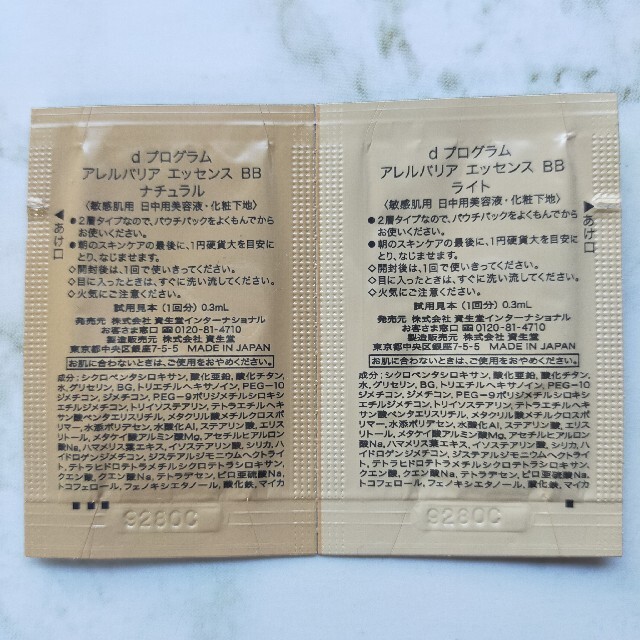 d プログラム
アレルバリア エッセンス BB
ナチュラル
〈敏感肌用 日中用美容液・化粧下地〉
●2層タイプなので、パウチパックをよくもんでから
お使いください。
●朝のスキンケアの最後に、1円硬貨大を目安に
とり、なじませます。
◇開封後は、1回で使いきってください。
◇目に入ったときは、すぐに洗い流してください。
◇火気にご注意ください。
試用見本（1回分）0.3mL
発売元 株式会社 資生堂インターナショナル
お客さま窓口 0120-81-4710
製造販売元 株式会社 資生堂
東京都中央区銀座7-5-5 MADE IN JAPAN
お肌に合わないときは、ご使用をおやめください。
成分：シクロペンタシロキサン, 酸化亜鉛, 酸化チタン,
水, グリセリン, BG, トリエチルヘキサノイン, PEG-10
ジメチコン, ジメチコン, PEG-9ポリジメチルシロキシ
エチルジメチコン, トリイソステアリン, テトラエチルヘキ
サン酸ペンタエリスリチル, メタクリル酸メチルクロスポリ
マー, 水添ポリデセン, 水酸化Al, ステアリン酸, エリス
リトール, メタケイ酸アルミン酸Mg, アセチルヒアルロン
酸Na, ハマメリス葉エキス, イソステアリン酸, シリカ, ハ
イドロゲンジメチコン, ジステアルジモニウムヘクトライ
ト, テトラヒドロテトラメチルシクロテトラシロキサン,
クエン酸, クエン酸Na, テトラデセン, ピロ亜硫酸Na,
トコフェロール, フェノキシエタノール, 酸化鉄, マイカ
◀あけ口
9280C
d プログラム
アレルバリア エッセンス BB
ライト
〈敏感肌用 日中用美容液・化粧下地〉
●2層タイプなので、パウチパックをよくもんでから
お使いください。
●朝のスキンケアの最後に、1円硬貨大を目安に
とり、なじませます。
◇開封後は、1回で使いきってください。
◇目に入ったときは、すぐに洗い流してください。
◇火気にご注意ください。
試用見本（1回分）0.3mL
発売元 株式会社 資生堂インターナショナル
お客さま窓口 0120-81-4710
製造販売元 株式会社 資生堂
東京都中央区銀座7-5-5 MADE IN JAPAN
お肌に合わないときは、ご使用をおやめください。
成分：シクロペンタシロキサン, 酸化亜鉛, 酸化チタン,
水, グリセリン, BG, トリエチルヘキサノイン, PEG-10
ジメチコン, ジメチコン, PEG-9ポリジメチルシロキシ
エチルジメチコン, トリイソステアリン, テトラエチルヘキ
サン酸ペンタエリスリチル, メタクリル酸メチルクロスポリ
マー, 水添ポリデセン, 水酸化Al, ステアリン酸, エリス
リトール, メタケイ酸アルミン酸Mg, アセチルヒアルロン
酸Na, ハマメリス葉エキス, イソステアリン酸, シリカ, ハ
イドロゲンジメチコン, ジステアルジモニウムヘクトライ
ト, テトラヒドロテトラメチルシクロテトラシロキサン,
クエン酸, クエン酸Na, テトラデセン, ピロ亜硫酸Na,
トコフェロール, フェノキシエタノール, 酸化鉄, マイカ
▶あけ口
9280C